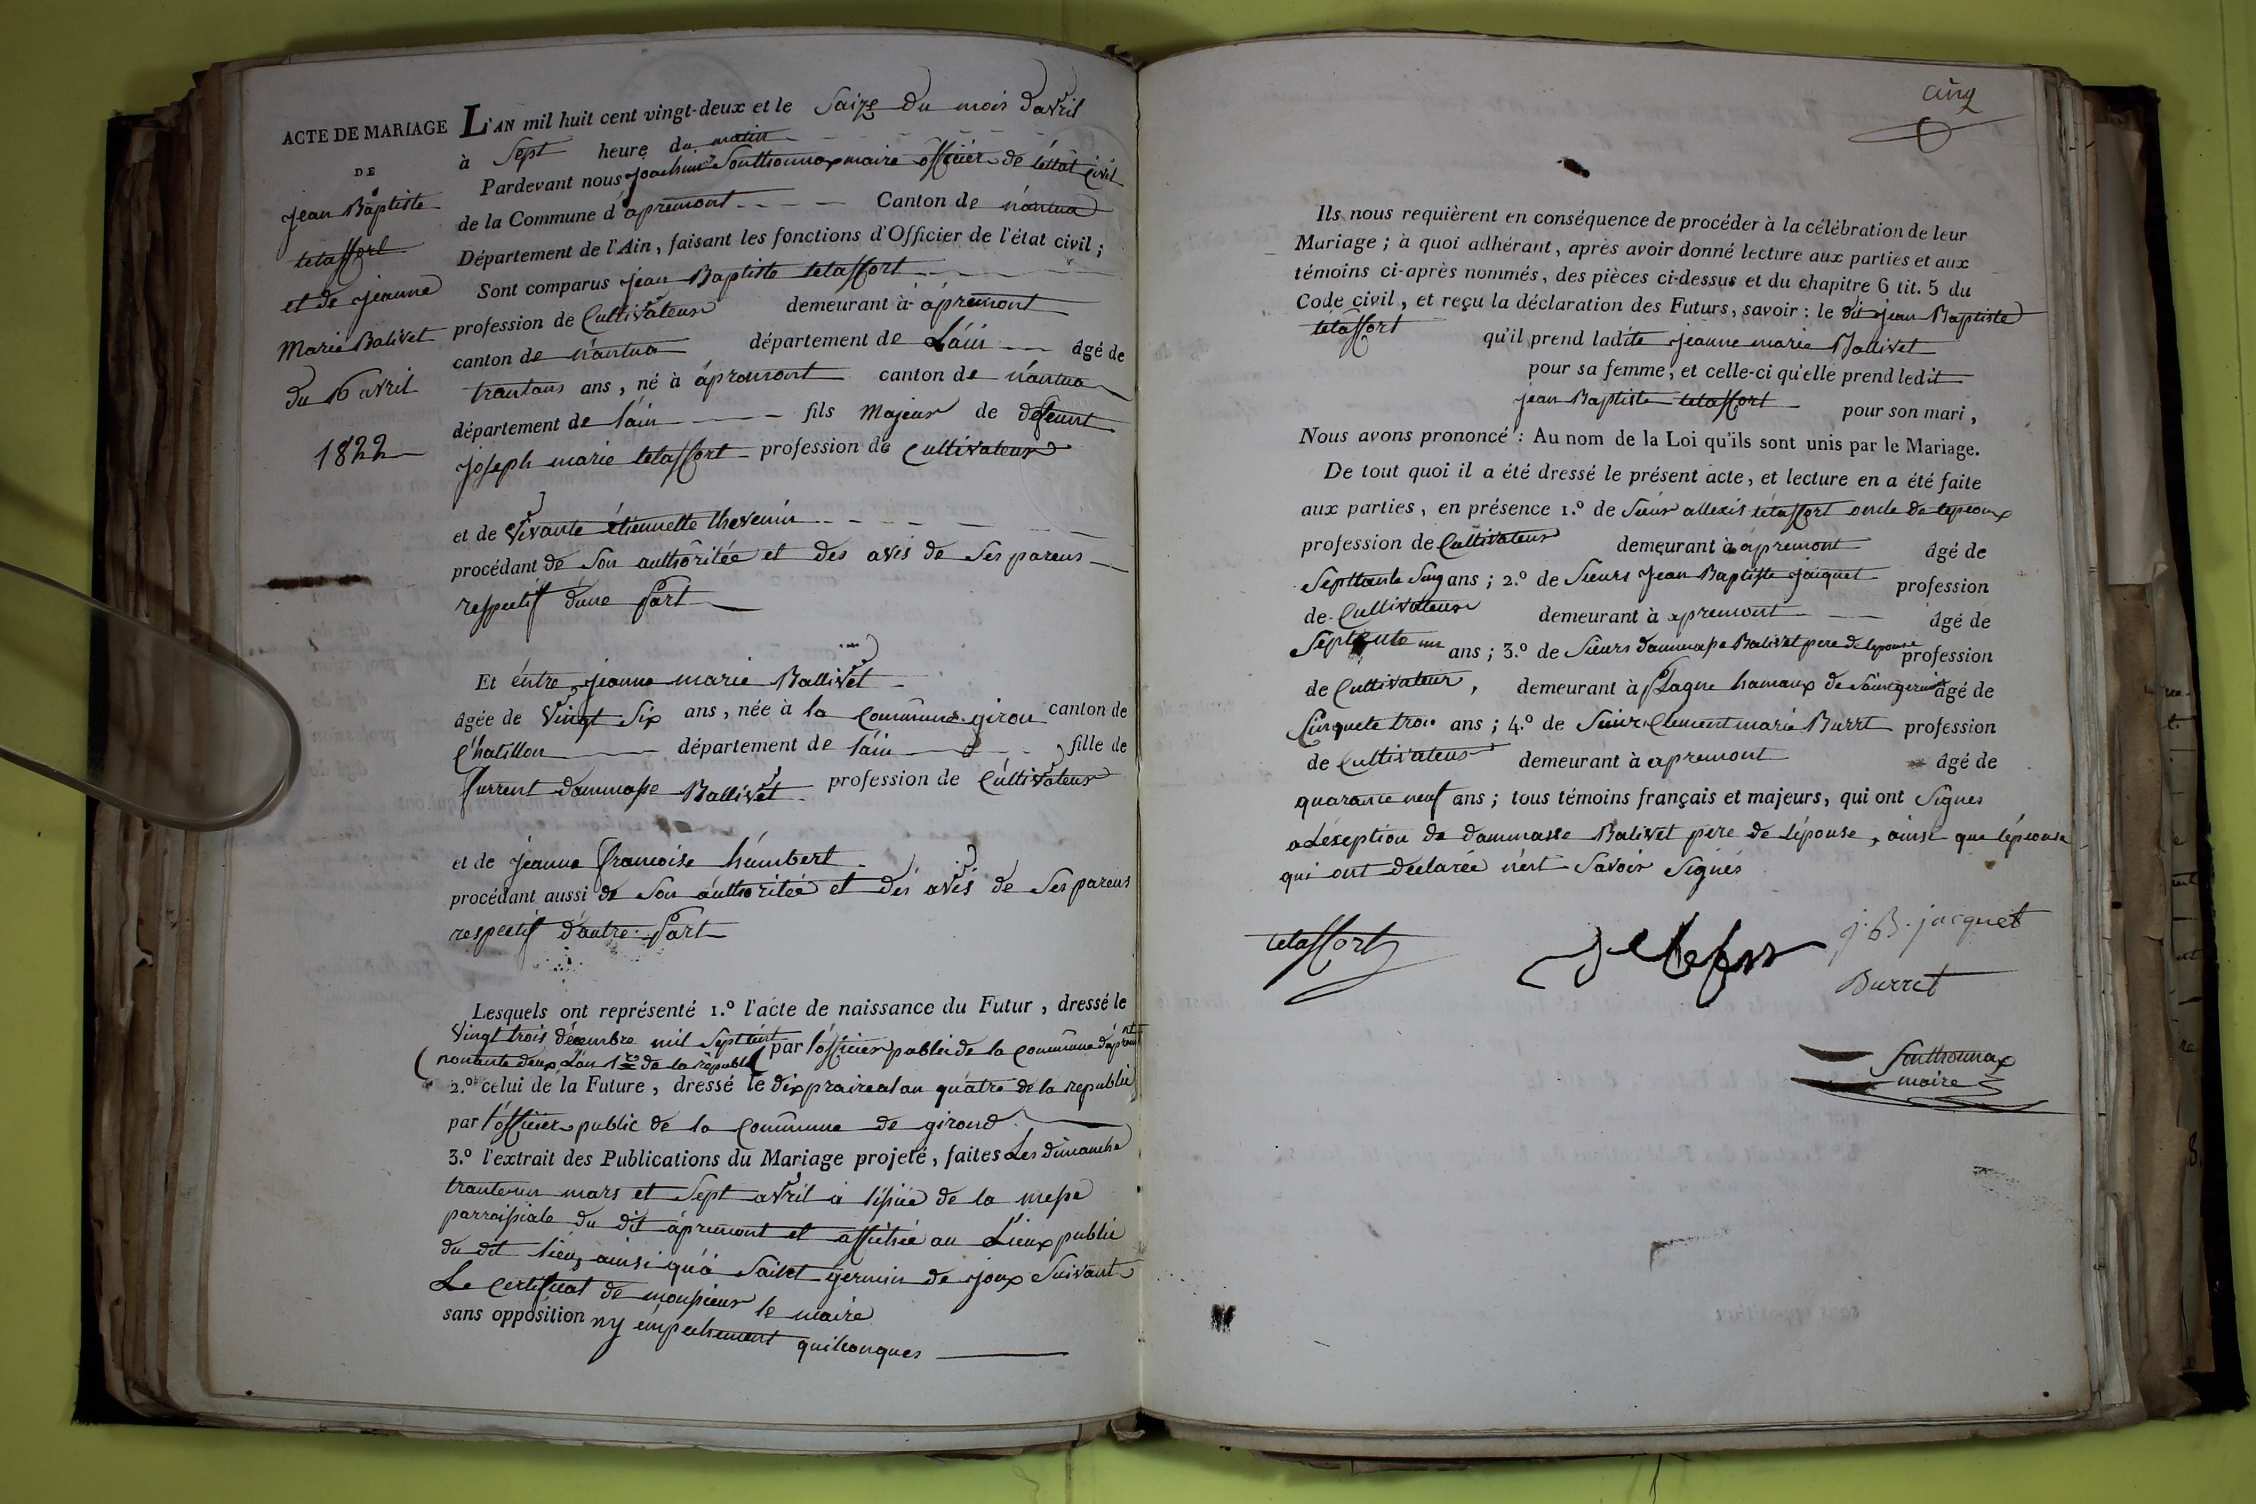 ACTE DE MARIAGE
DE
jean Baptiste
tetaffort
et de jeanne
marie Balivet
du 16 avril
1822
L'AN mil huit cent vingt-deux et le Saize du mois davril
à Sept heure du matin
Pardevant nous joachim Sonthonnax maire officier de l'étât civil
de la Commune d'apremont Canton de nántua
Département de l'Ain, faisant les fonctions d'Officier de l'état civil;
Sont comparus jean Baptiste tetaffort
profession de Cultivateur demeurant à ápremont
canton de nántua département de Láin âgé de
trantans ans, né à ápremont canton de nántua
département de láin fils Majeur de defeunt
joseph marie tetaffort profession de Cultivateur
et de vivante étiennette thevenin
procédant de Son authôritée et des avis de Ses parens
respectif d'une Part
Et éntre jeanne marie Ballivet
âgée de vingt Six ans, née à la Commune giron canton de
Châtillon département de láin fille de
dammase Ballivet profession de Cultivateur
et de jeanne françoise húmbert
procédant aussi de Son authoritée et des avis de Ses parens
respectif d'autre Part
Lesquels ont représenté 1.º l'acte de naissance du Futur, dressé le
vingt trois décembre mil Sept cent par l'officier public de la commune dápremont
(nonante deux l'an 1er de la républe
2.º celui de la Future, dressé le dix praireal an quátre de la republic
par l'officier public de la Commune de girond
3.º l'extrait des Publications du Mariage projeté, faites Les dimanche
trante un mars et Sept avril à l'isüe de la messe
parroissiale du dit ápremont et affichée au Lieux public
du dit lieu, ainsi quá Saint germin de joux Suivant
Le Certificat de monsieur le maire
sans opposition ny émpechement quilconques
cinq
Ils nous requièrent en conséquence de procéder à la célébration de leur
Mariage; à quoi adhérant, après avoir donné lecture aux parties et aux
témoins ci-après nommés, des pièces ci-dessus et du chapitre 6 tit. 5 du
Code civil, et reçu la déclaration des Futurs, savoir: le dit jean Baptiste
tétaffort qu'il prend ladite jeanne marie Ballivet
pour sa femme, et celle-ci qu'elle prend ledit
jean Baptiste tetaffort pour son mari,
Nous avons prononcé: Au nom de la Loi qu'ils sont unis par le Mariage.
De tout quoi il a été dressé le présent acte, et lecture en a été faite
aux parties, en présence 1.º de Sieur allexis tétaffort oncle de lepeoux
profession de Cultivateur demeurant à ápremont âgé de
Septtante Sinq ans; 2.º de Sieurs jean Baptiste jaiquet profession
de Cultivateur demeurant à apremont âgé de
Septente un ans; 3.º de Sieurs dammase Balivet pere de lepouse profession
de Cultivateur, demeurant à Plagne hamaux de Saint germin âgé de
Sinquete trois ans; 4.º de Sieur Clement marie Burrt profession
de Cultivateur demeurant à apremont âgé de
quarante neuf ans; tous témoins français et majeurs, qui ont Signes
a Léxeption de dammasse Balivet pere de lépouse, ainsi que lépeouse
qui ont declarée n'ent Savoir Signés
tetaffort
j. B. jacquet
Burret
Sonthonnax
maire